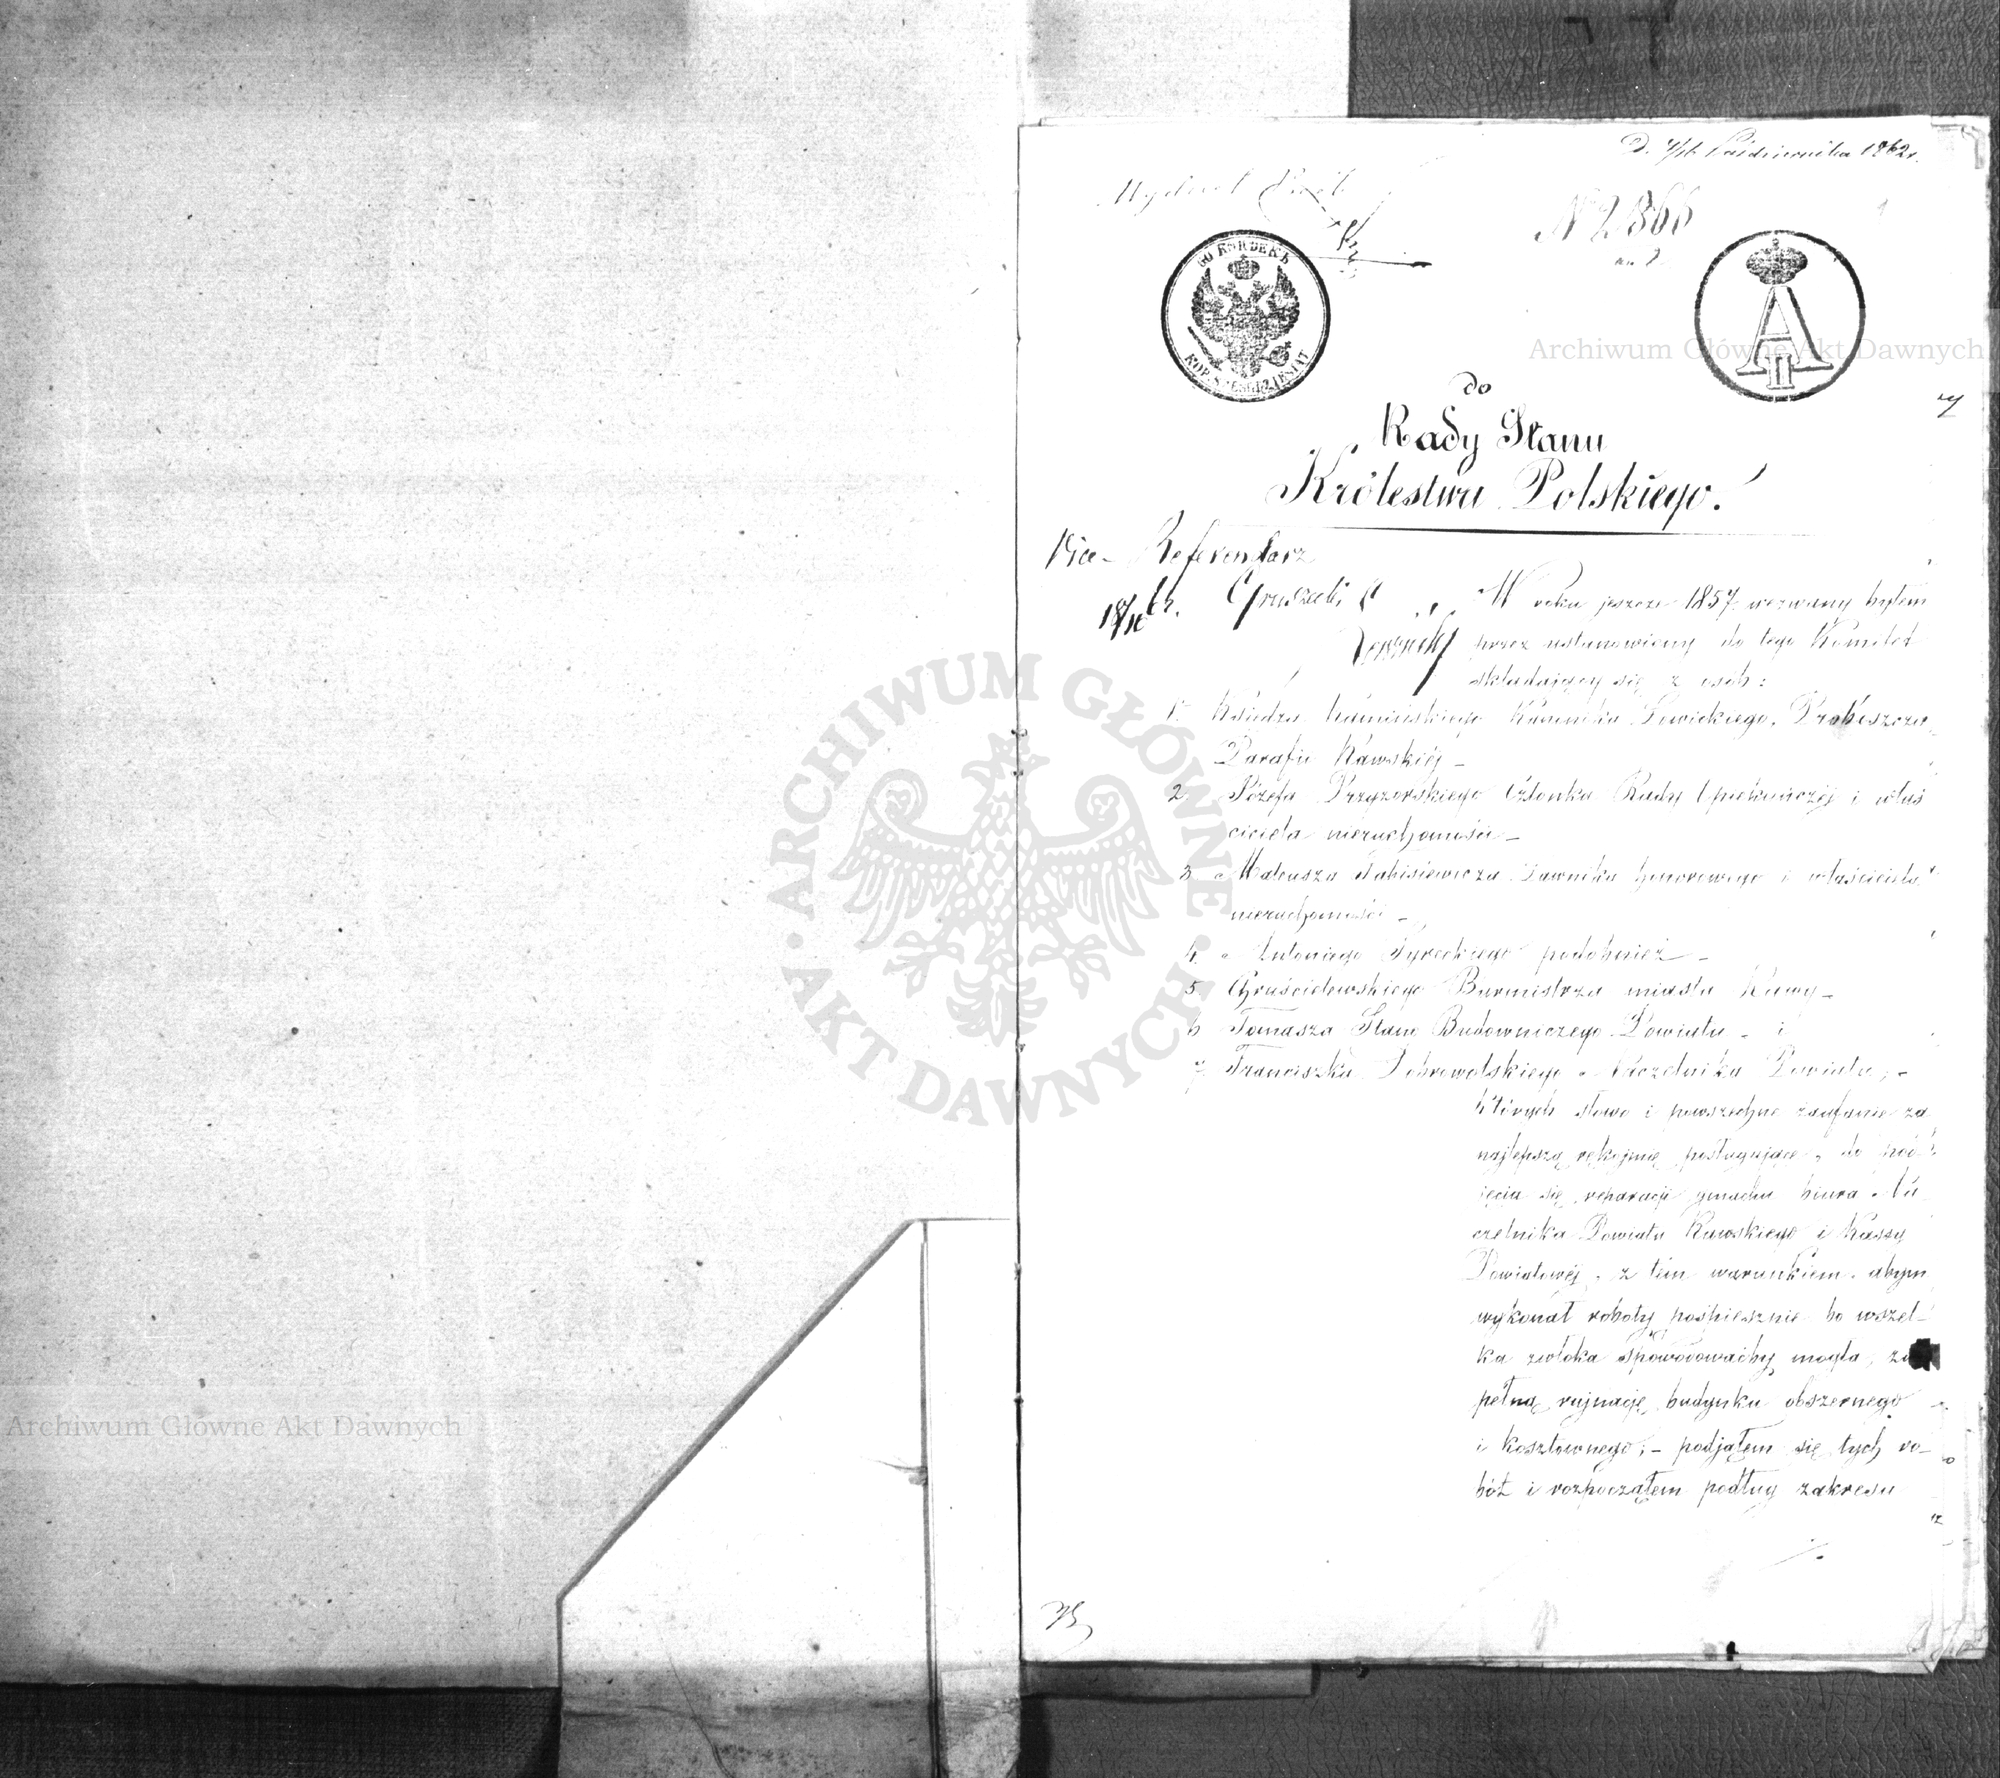 D. 4/16 Października 1862 r.
Wydział
N 2866
60 КОПѢЕКЪ
KOP. SZEŚĆDZIESIĄT
A II
do
Rady Stanu
Królestwa Polskiego.
Vice-Referendarz
W roku jeszcze 1857 wezwany byłem
przez ustanowiony do tego Komitet
składający się z osób:
1. Księdza Kamińskiego Kanonika Łowickiego, Proboszcza
Parafii Rawskiéj –
2. Józefa Przyzorskiego Członka Rady Opiekuńczéj i właś
ciciela nieruchomości –
3. Mateusza Ławnika honorowego i właściciela
nieruchomości –
4. Antoniego podobnież –
5. Burmistrza miasta Rawy –
6. Tomasza Budowniczego Powiatu – i
7. Franciszka Dobrowolskiego Naczelnika Powiatu; –
których słowo i powszechne zaufanie za
najlepszą rękojmię posługujące, do pod
jęcia się reparacji gmachu biura Na
czelnika Powiatu Rawskiego i Kassy
Powiatowéj, z tém warunkiem, abym
wykonał roboty pośpiesznie bo wszel-
ka zwłoka spowodowaćby mogła, zu
pełną rujnację budynku obszernego
i kosztownego; – podjąłem się tych ro-
bót i rozpocząłem podług zakresu
ARCHIWUM GŁÓWNE AKT DAWNYCH
Archiwum Główne Akt Dawnych
Archiwum Główne Akt Dawnych